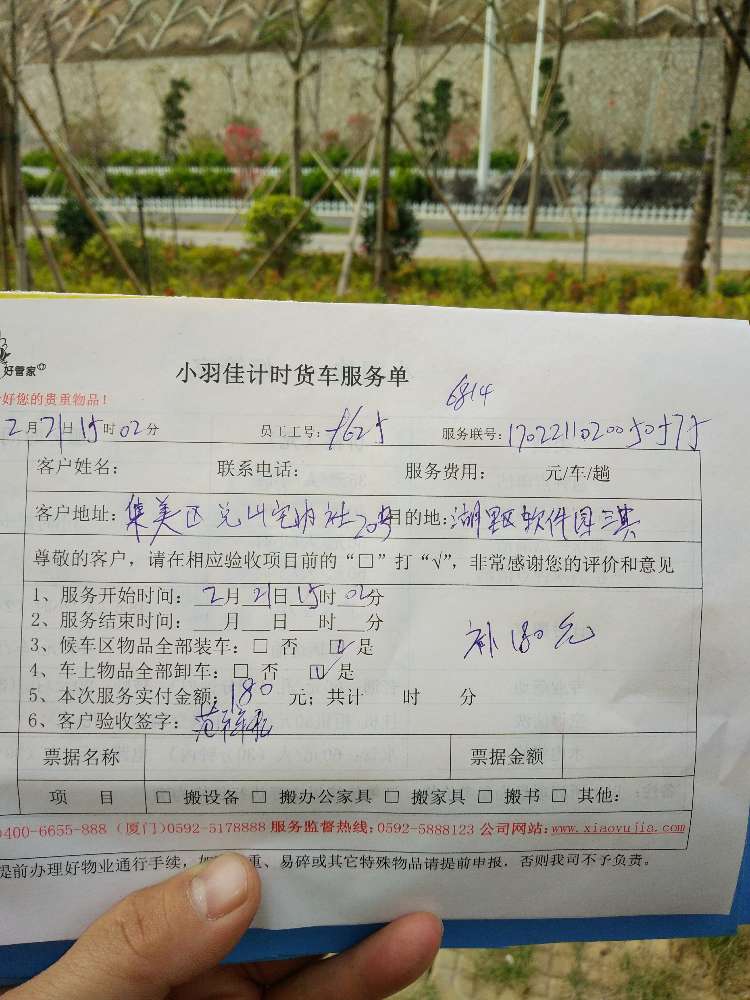 好管家
小羽佳计时货车服务单
好您的贵重物品!
6814
2月21日15时02分 员工工号: 服务联号:
客户姓名: 联系电话: 服务费用: 元/车/趟
客户地址:集美区兑山宅内社 目的地:湖里区软件园三期
尊敬的客户，请在相应验收项目前的“□”打“√”，非常感谢您的评价和意见
1、服务开始时间:2月21日15时02分
2、服务结束时间: 月 日 时 分
补180元
3、候车区物品全部装车:□ 否 ☑ 是
4、车上物品全部卸车:□ 否 ☑ 是
5、本次服务实付金额:180 元; 共计 时 分
6、客户验收签字:
票据名称 票据金额
项 目 □ 搬设备 □ 搬办公家具 □ 搬家具 □ 搬书 □ 其他:
400-6655-888 (厦门)0592-5178888 服务监督热线:0592-5888123 公司网站:www.xiaoyujia.com
提前办理好物业通行手续, 重、易碎或其它特殊物品请提前申报, 否则我司不予负责。